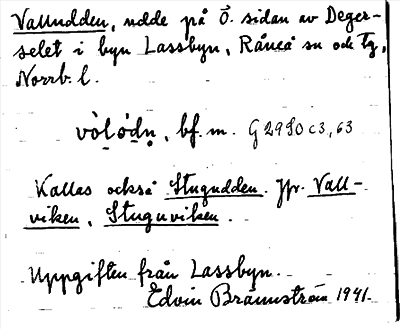 Valludden, udde på Ö. sidan av Deger-
selet i byn Lassbyn, Råneå sn och tg,
Norrb. l.
vòlódṇ, bf. m. G2950c3,63
Kallas också Stugudden. Jfr. Vall-
viken, Stuguviken.
Uppgiften från Lassbyn.
Edvin Brännström 1941.